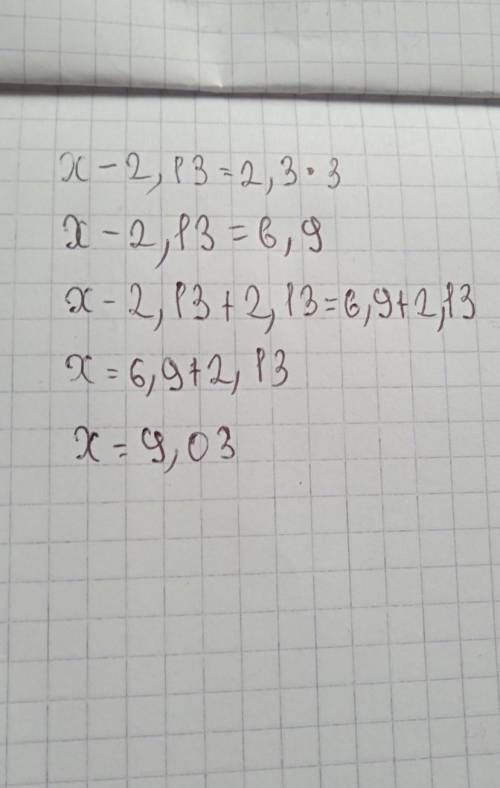 x - 2,13 = 2,3 · 3
x - 2,13 = 6,9
x - 2,13 + 2,13 = 6,9 + 2,13
x = 6,9 + 2,13
x = 9,03